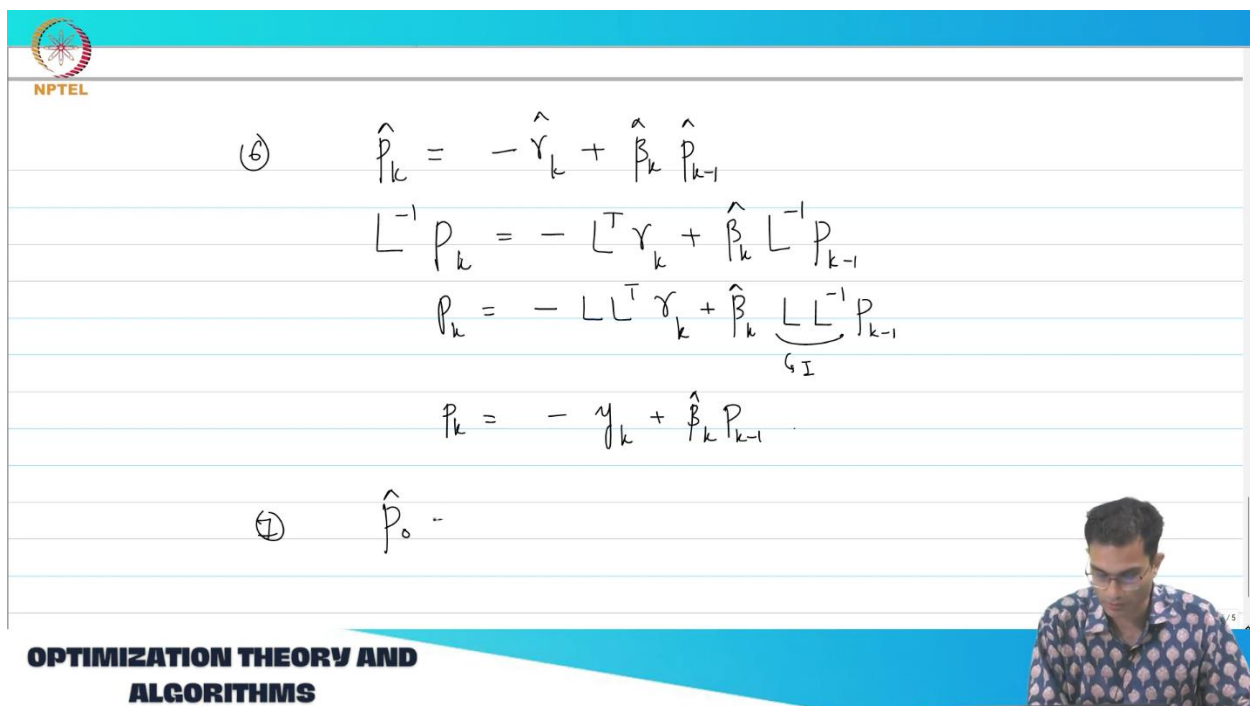 NPTEL
⑥ p̂ₖ = - r̂ₖ + β̂ₖ p̂ₖ₋₁
L⁻¹ pₖ = - Lᵀ rₖ + β̂ₖ L⁻¹ pₖ₋₁
pₖ = - L Lᵀ rₖ + β̂ₖ L L⁻¹ pₖ₋₁
↳ I
pₖ = - yₖ + β̂ₖ pₖ₋₁ .
⑦ p̂₀ -
OPTIMIZATION THEORY AND
ALGORITHMS